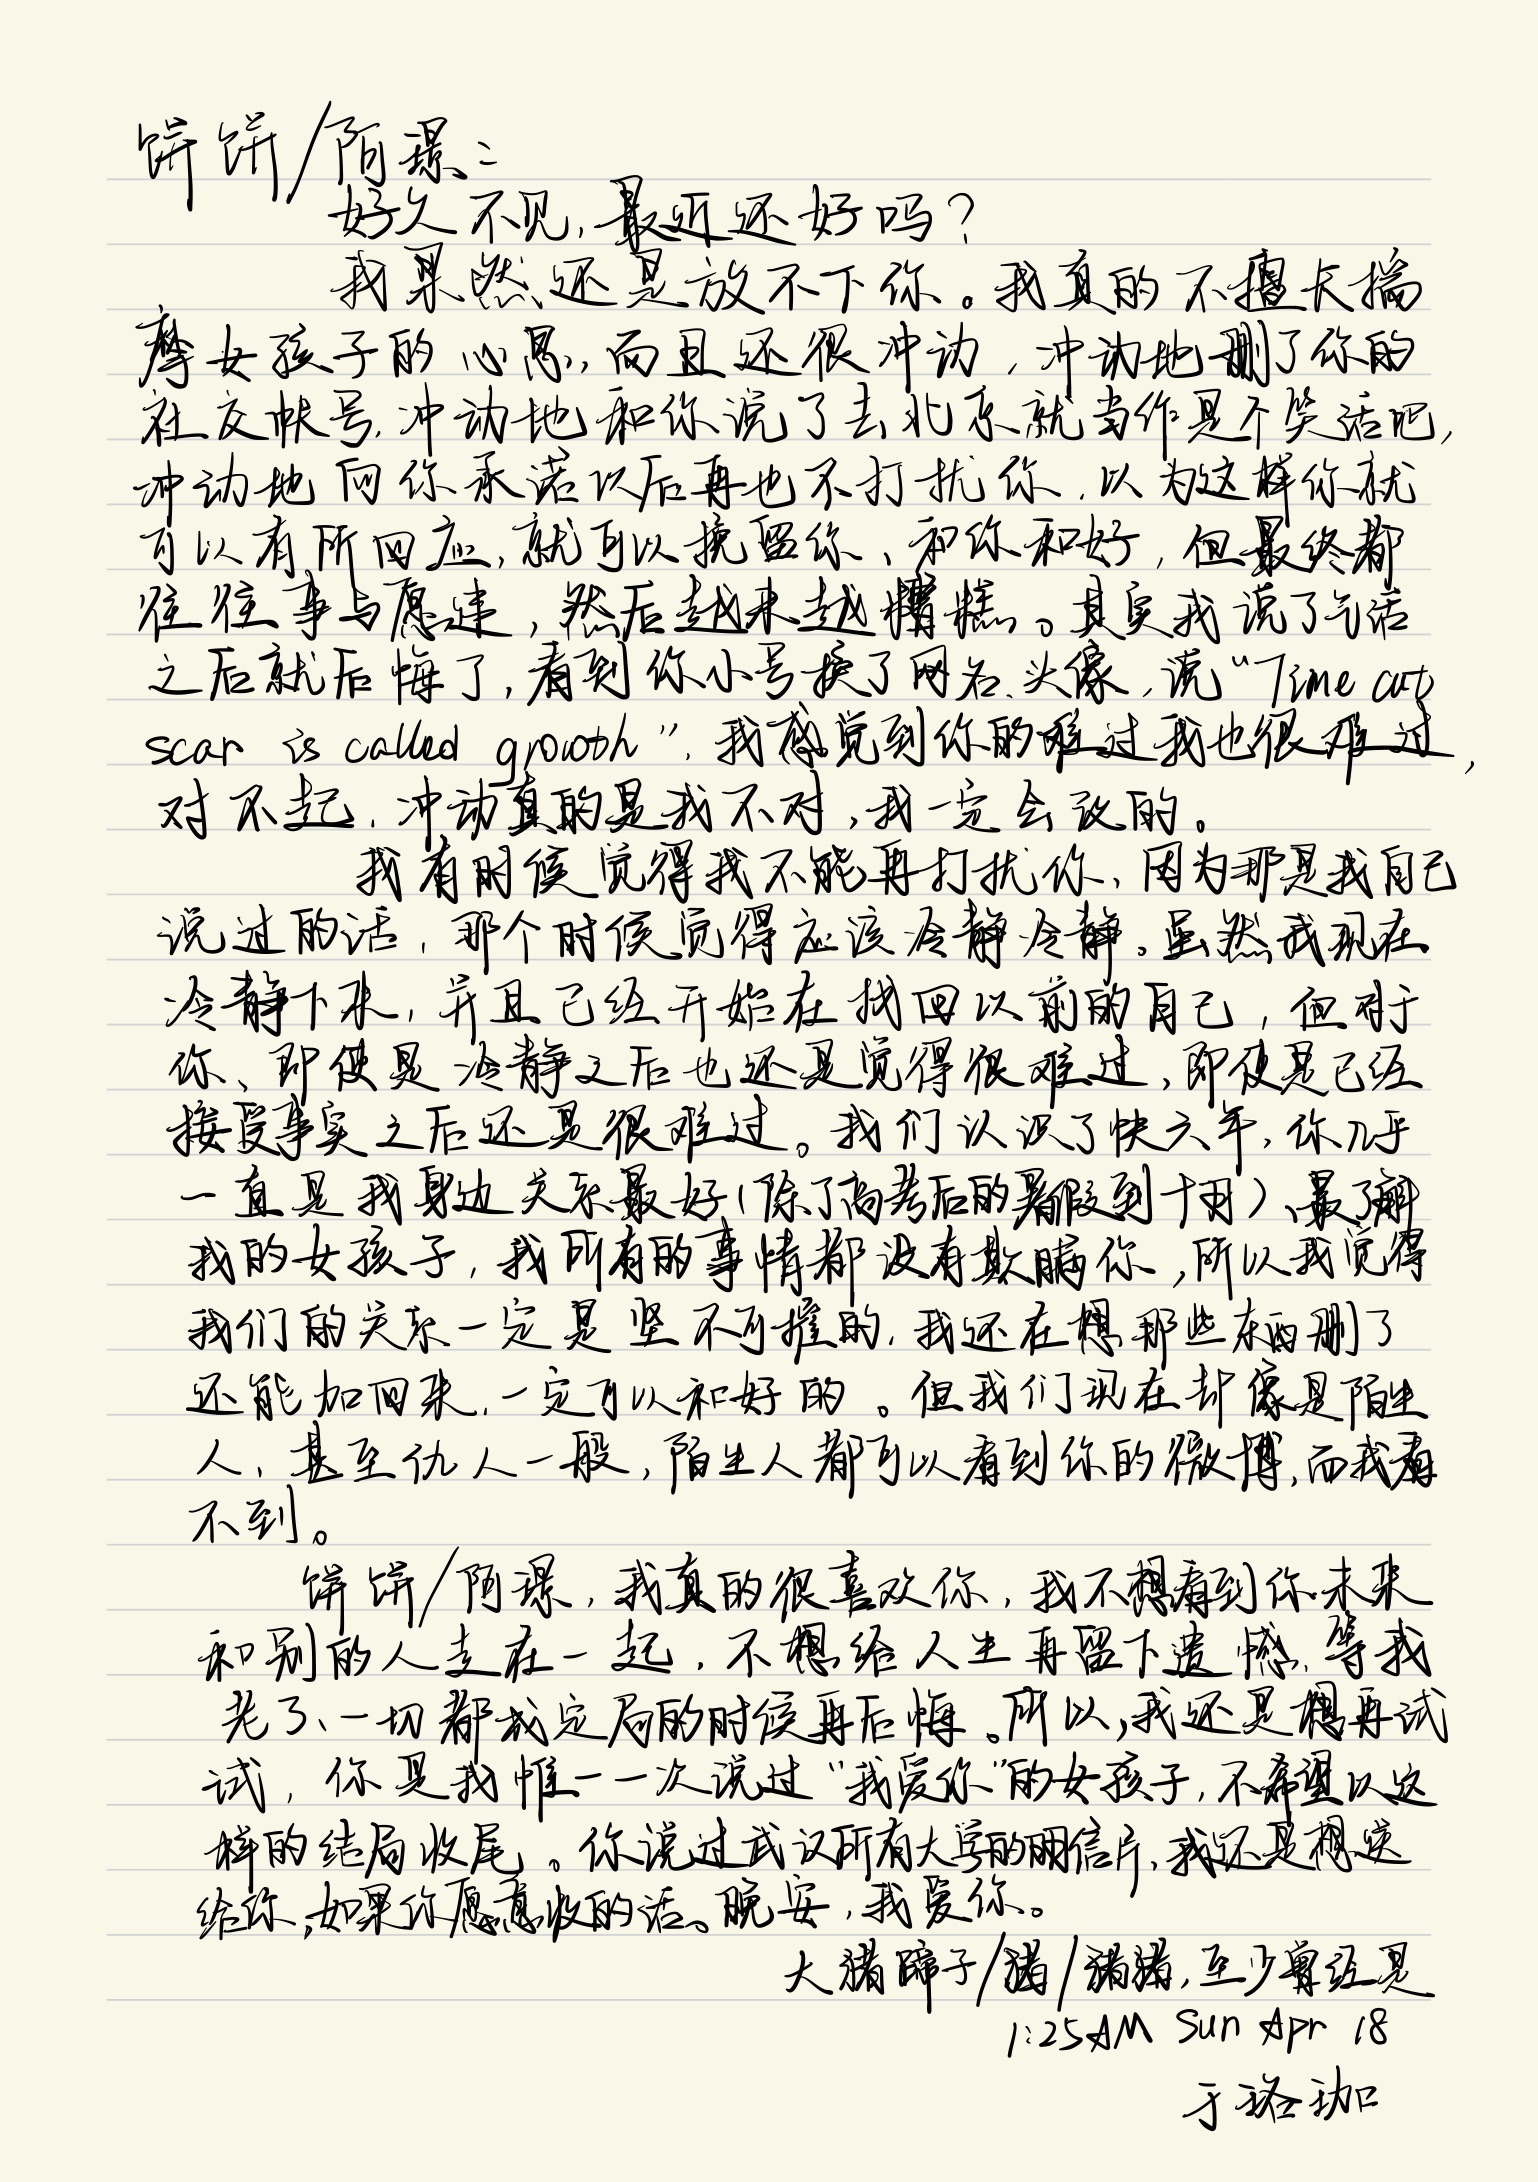 饼饼/阿璟：
好久不见，最近还好吗？
我果然还是放不下你。我真的不擅长揣
摩女孩子的心思，而且还很冲动，冲动地删了你的
社交帐号，冲动地和你说了去北京就当作是个笑话吧，
冲动地向你承诺以后再也不打扰你，以为这样你就
可以有所回应，就可以挽留你、和你和好，但最终都
往往事与愿违，然后越来越糟糕。其实我说了气话
之后就后悔了，看到你小号换了网名、头像，说“Time cut
scar is called growth”，我感觉到你的难过我也很难过，
对不起，冲动真的是我不对，我一定会改的。
我有时候觉得我不能再打扰你，因为那是我自己
说过的话，那个时候觉得应该冷静冷静。虽然我现在
冷静下来，并且已经开始在找回以前的自己，但对于
你、即使是冷静之后也还是觉得很难过，即使是已经
接受事实之后还是很难过。我们认识了快六年，你几乎
一直是我身边关系最好（除了高考后的暑假到十月）、最了解
我的女孩子，我所有的事情都没有欺瞒你，所以我觉得
我们的关系一定是坚不可摧的，我还在想那些东西删了
还能加回来，一定可以和好的。但我们现在却像是陌生
人，甚至仇人一般，陌生人都可以看到你的微博，而我看
不到。
饼饼/阿璟，我真的很喜欢你，我不想看到你未来
和别的人走在一起，不想给人生再留下遗憾，等我
老了、一切都成定局的时候再后悔。所以，我还是想再试
试，你是我惟一一次说过“我爱你”的女孩子，不希望以这
样的结局收尾。你说过武汉所有大学的明信片，我还是想送
给你，如果你愿意收的话。晚安，我爱你。
大猪蹄子/猪/猪猪，至少曾经是
1:25AM Sun Apr 18
于珞珈